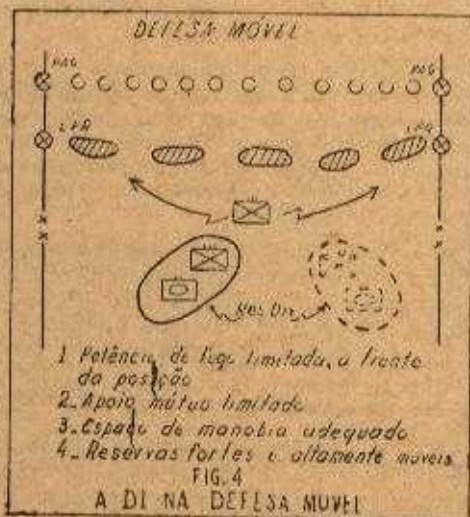 DEFESA MÓVEL
PAG PAG
LPR LPR
Res Div
1 Potência de fogo limitada, a frente
da posição
2_ Apoio mútuo limitado
3_ Espaço de manobra adequado
4_ Reservas fortes e altamente moveis
FIG. 4
A DI NA DEFESA MOVEL